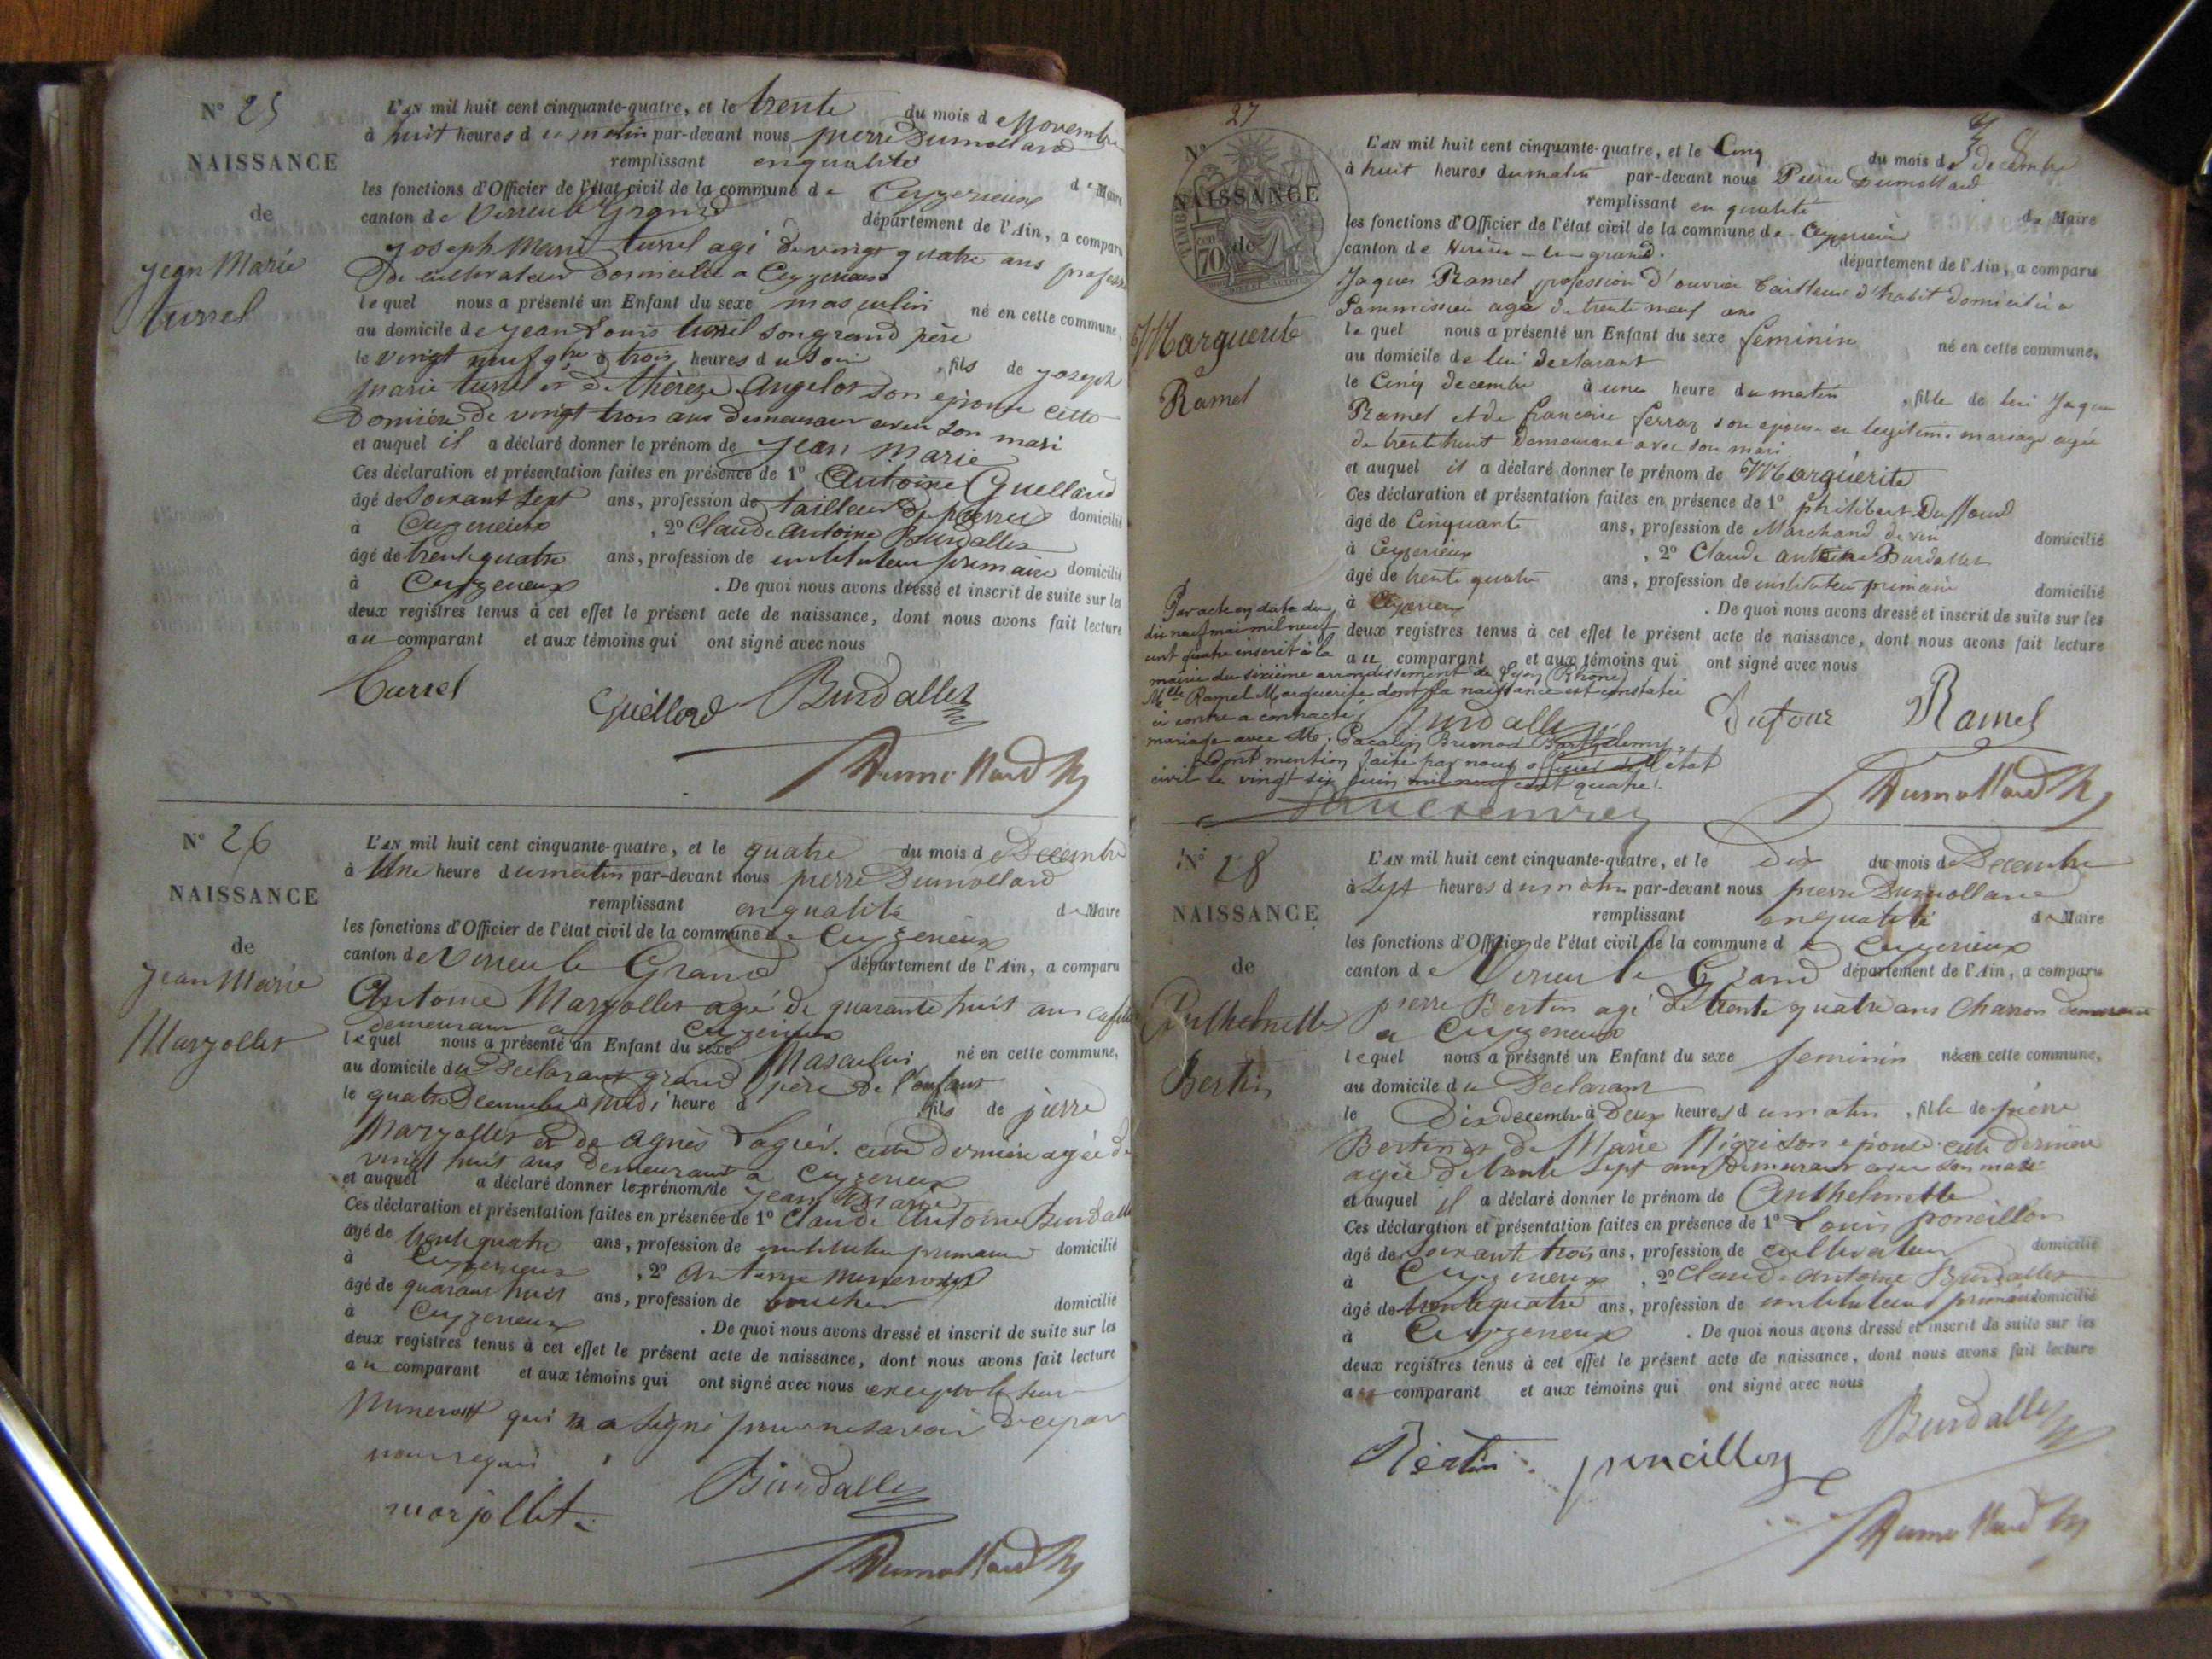 N° 25
NAISSANCE
de
Jean Marie
turrel
L'AN mil huit cent cinquante-quatre, et le trente du mois de Novembre
à huit heures du matin par-devant nous pierre Dumollard
remplissant en qualité de Maire
les fonctions d'Officier de l'état civil de la commune de Ceyzerieux
canton de Virieu le Grand département de l'Ain, a comparu
Joseph Marie turrel agé de vingt quatre ans profession
de cultivateur domicilié a Ceyzerieux
lequel nous a présenté un Enfant du sexe masculin né en cette commune,
au domicile de jean Louis turrel son grand père
le vingt neuf 9bre à trois heures du soir, fils de joseph
marie turrel et de thérèse Angelot son epouse cette
dernière de vingt trois ans demeurant avec son mari
et auquel il a déclaré donner le prénom de Jean Marie
Ces déclaration et présentation faites en présence de 1° Antoine Guelland
âgé de soixant sept ans, profession de tailleur de pierre domicilié
à Ceyzerieux, 2° Claude antoine Burdallet
âgé de trente quatre ans, profession de instituteur primaire domicilié
à Ceyzerieux. De quoi nous avons dressé et inscrit de suite sur les
deux registres tenus à cet effet le présent acte de naissance, dont nous avons fait lecture
au comparant et aux témoins qui ont signé avec nous
turrel Guelland Burdallet
Dumollard
N° 26
NAISSANCE
de
Jean Marie
Marjollet
L'AN mil huit cent cinquante-quatre, et le quatre du mois de Decembre
à Une heure du matin par-devant nous pierre Dumollard
remplissant en qualité de Maire
les fonctions d'Officier de l'état civil de la commune de Ceyzerieux
canton de Virieu le Grand département de l'Ain, a comparu
Antoine Marjollet agé de quarante huit ans
demeurant a Ceyzerieux
lequel nous a présenté un Enfant du sexe Masculin né en cette commune,
au domicile du Declarant grand père de l'enfant
le quatre Decembre à midi heure d, fils de pierre
Marjollet et de agnès Lagier. cette dernière agée de
vingt huit ans demeurant a Ceyzerieux
et auquel a déclaré donner le prénom de jean Marie
Ces déclaration et présentation faites en présence de 1° Claude Antoine Burdallet
âgé de trente quatre ans, profession de instituteur primaire domicilié
à Ceyzerieux, 2° Antoine
âgé de quarant huit ans, profession de boucher domicilié
à Ceyzerieux. De quoi nous avons dressé et inscrit de suite sur les
deux registres tenus à cet effet le présent acte de naissance, dont nous avons fait lecture
au comparant et aux témoins qui ont signé avec nous excepté le sieur
qui n'a signé pour ne savoir de ce par
nous requis
marjollet Burdallet
Dumollard
27
N°
NAISSANCE
de
TIMBRE
70
Marguerite
Ramel
L'AN mil huit cent cinquante-quatre, et le Cinq du mois de decembre
à huit heures du matin par-devant nous Pierre Dumollard
remplissant en qualité de Maire
les fonctions d'Officier de l'état civil de la commune de Ceyzerieux
canton de Virieu-le-grand. département de l'Ain, a comparu
Jaques Ramel profession d'ouvrier tailleur d'habit domicilié a
agé de trente neuf ans
lequel nous a présenté un Enfant du sexe féminin né en cette commune,
au domicile de lui declarant
le Cinq decembre à une heure du matin, fille de lui Jaque
Ramel et de francoise ferraz son epouse en legitime mariage agée
de trente huit demeurant avec son mari
et auquel il a déclaré donner le prénom de Marguerite
Ces déclaration et présentation faites en présence de 1° philibert
âgé de Cinquante ans, profession de Marchand de vin domicilié
à Ceyzerieux, 2° Claude antoine Burdallet
âgé de trente quatre ans, profession de instituteur primaire domicilié
à Ceyzerieux. De quoi nous avons dressé et inscrit de suite sur les
deux registres tenus à cet effet le présent acte de naissance, dont nous avons fait lecture
au comparant et aux témoins qui ont signé avec nous
Par acte en date du
dix neuf mai mil neuf
cent quatre inscrit à la
mairie du sixième arrondissement de Lyon (Rhône)
Melle Ramel Marguerite dont la naissance est constatée
ci contre a contracté
mariage avec Mr. Pacalin Brunod Barthélemy,
dont mention faite par nous officier de l'état
civil le vingt six juin mil neuf cent quatre.
Burdallet Dufour Ramel
Dumollard
N° 28
NAISSANCE
de
Anthelmette
Bertin
L'AN mil huit cent cinquante-quatre, et le Dix du mois de Decembre
à Sept heures du matin par-devant nous pierre Dumollard
remplissant en qualité de Maire
les fonctions d'Officier de l'état civil de la commune de Ceyzerieux
canton de Virieu le Grand département de l'Ain, a comparu
pierre Bertin agé de trente quatre ans charron demeurant
a Ceyzerieux
lequel nous a présenté un Enfant du sexe feminin né en cette commune,
au domicile du Declarant
le Dix decembre à Deux heures du matin, fille de pierre
Bertin et de Marie Nigri son epouse cette dernière
agée de trente sept ans demeurant avec son mari
et auquel il a déclaré donner le prénom de Anthelmette
Ces déclaration et présentation faites en présence de 1° Louis poncillon
âgé de soixante trois ans, profession de cultivateur domicilié
à Ceyzerieux, 2° Claude antoine Burdallet
âgé de trente quatre ans, profession de instituteur primaire domicilié
à Ceyzerieux. De quoi nous avons dressé et inscrit de suite sur les
deux registres tenus à cet effet le présent acte de naissance, dont nous avons fait lecture
au comparant et aux témoins qui ont signé avec nous
Burdallet
Bertin poncillon
Dumollard